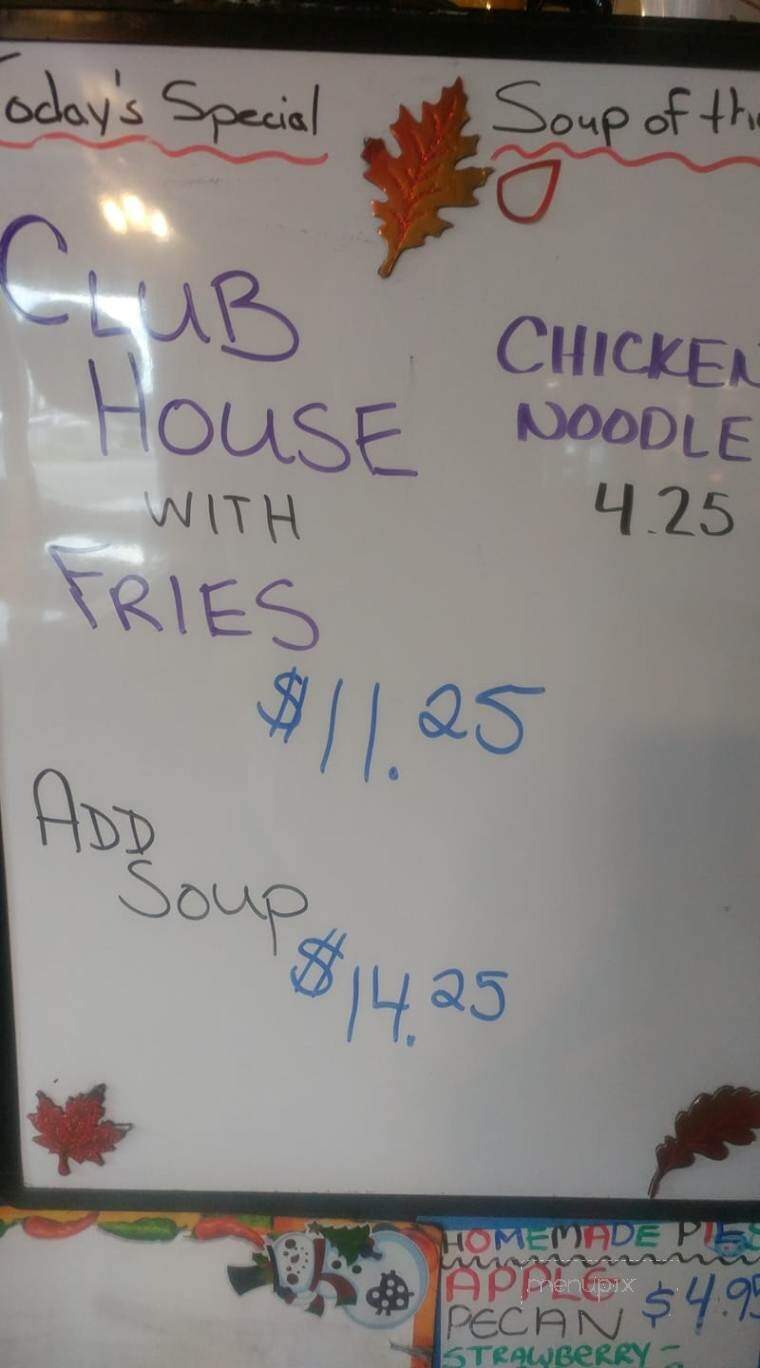 Today's Special
CLUB
HOUSE
WITH
FRIES
$11.25
ADD
Soup
$14.25
Soup of the
CHICKEN
NOODLE
4.25
HOMEMADE PIES
APPLE
PECAN $4.95
STRAWBERRY -
menupix